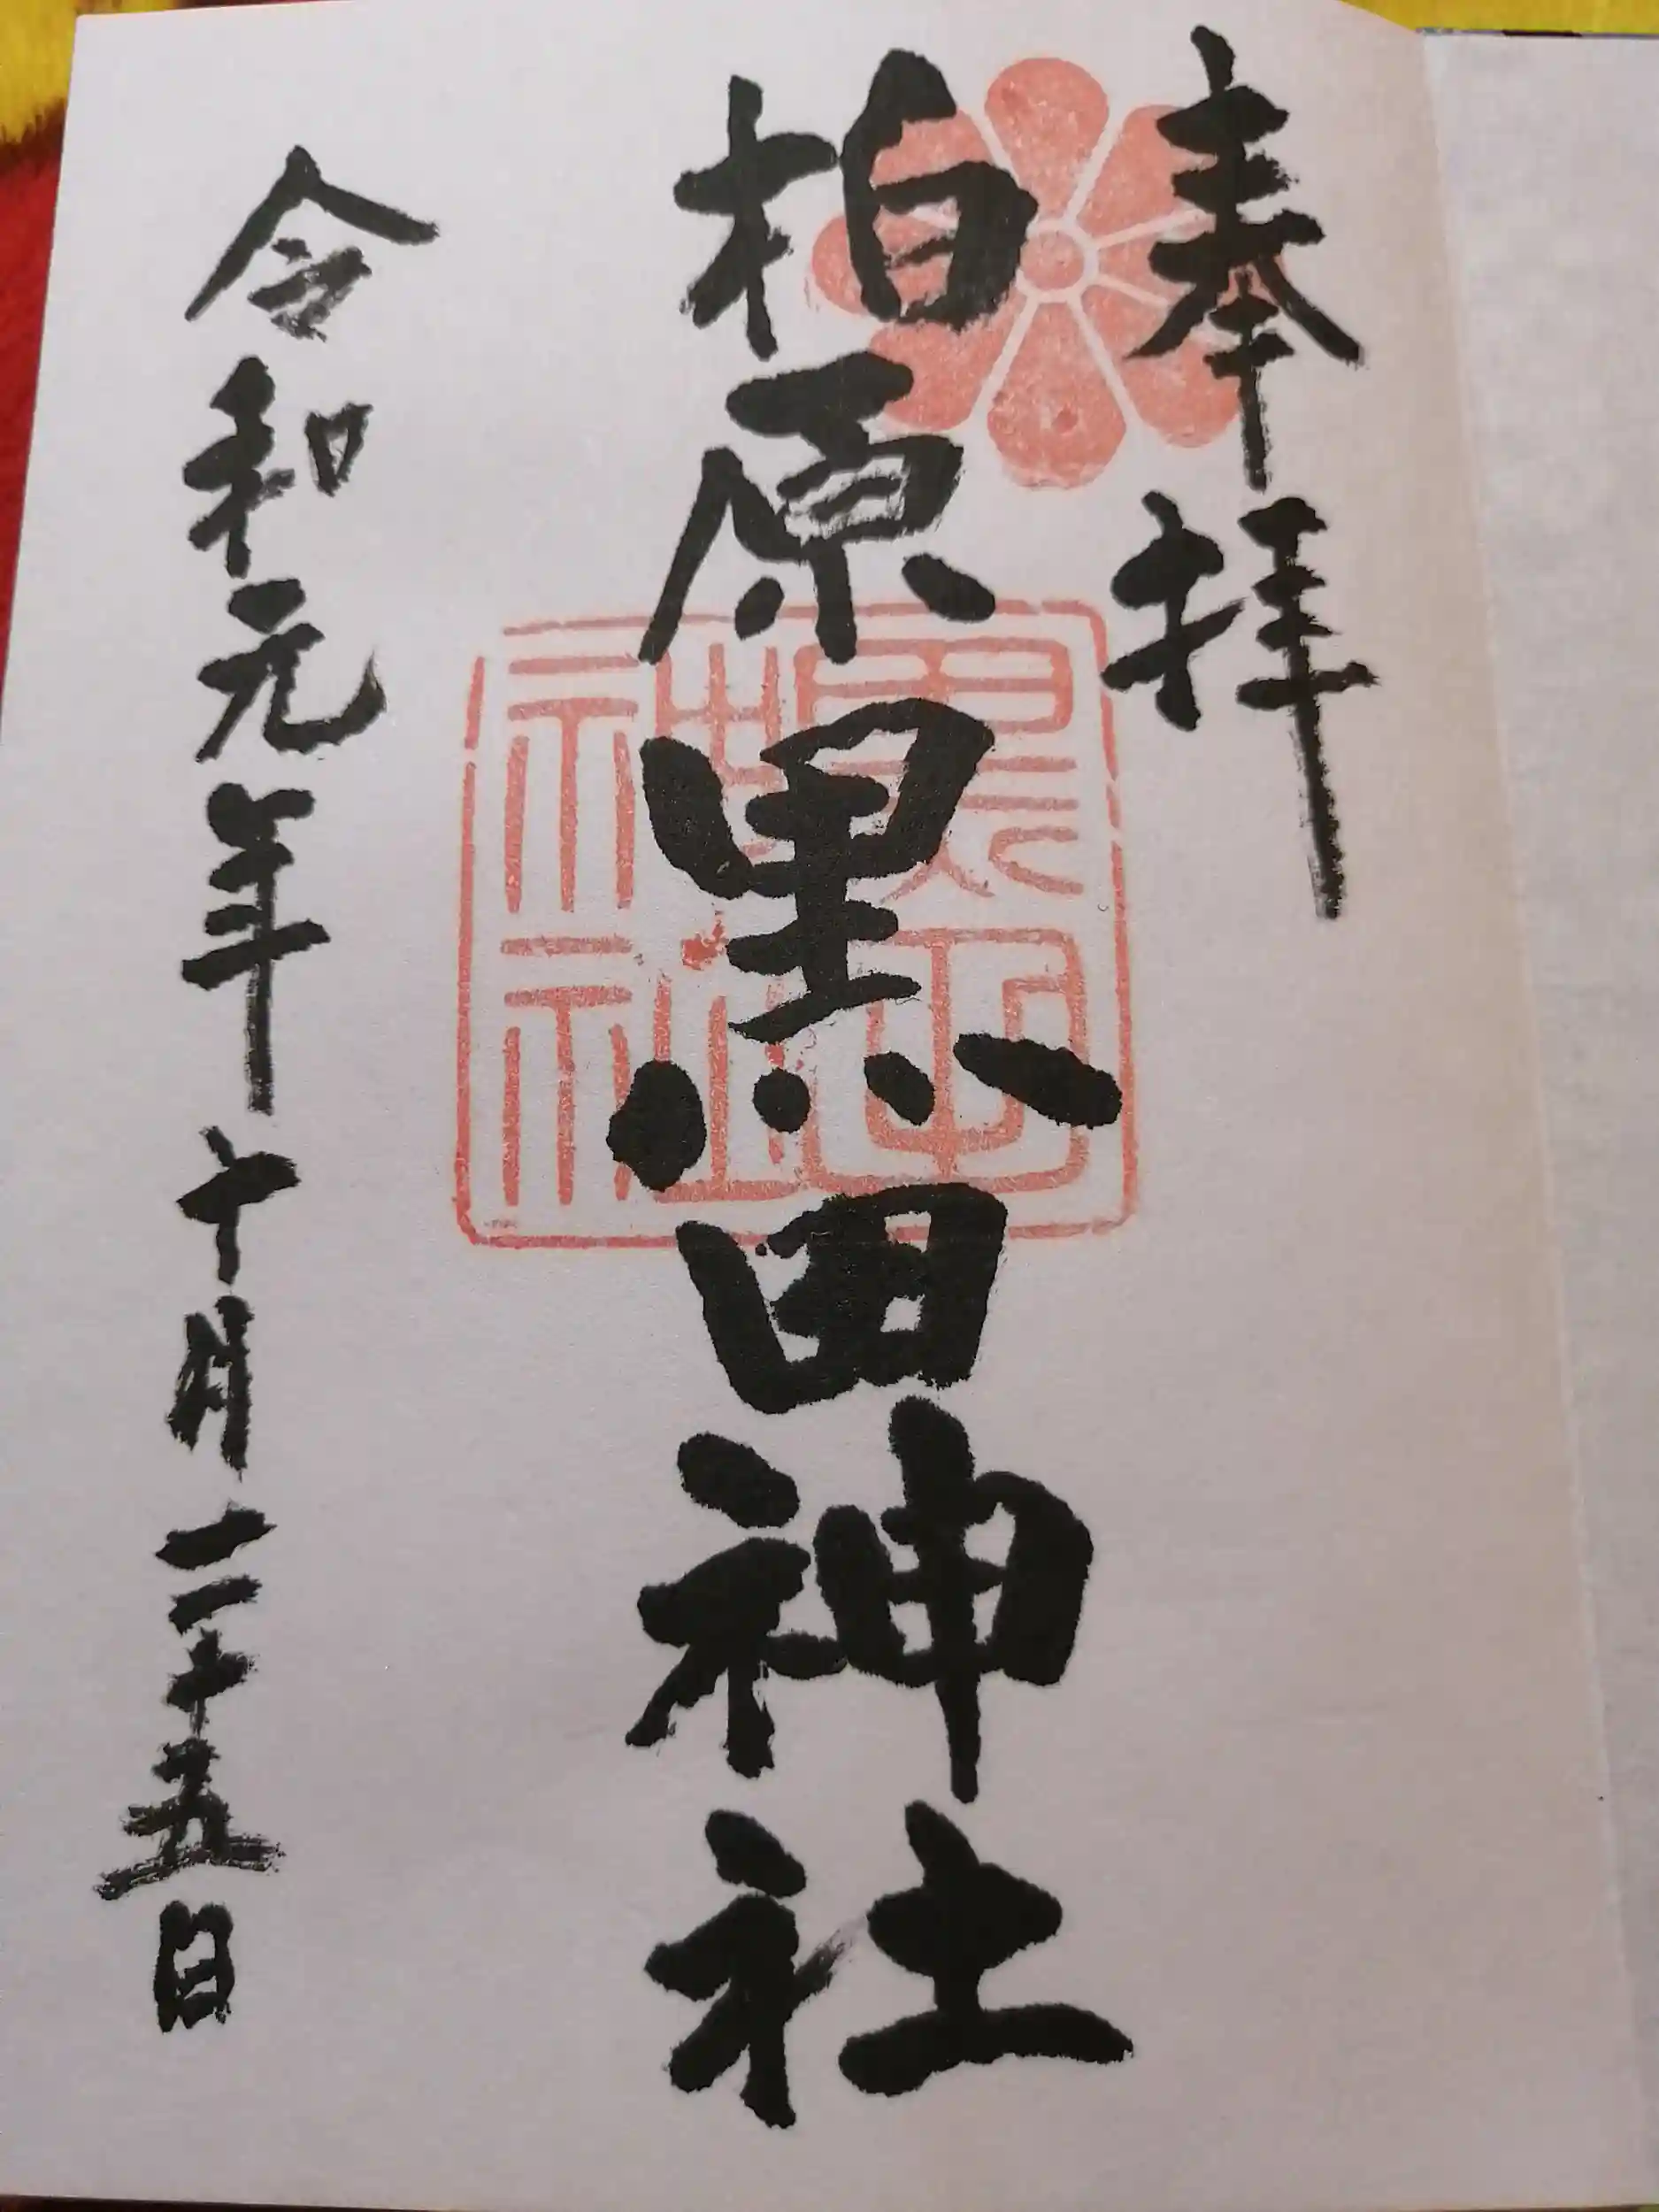 奉拝
柏原黒田神社
黒田
神社
令和元年十月二十五日